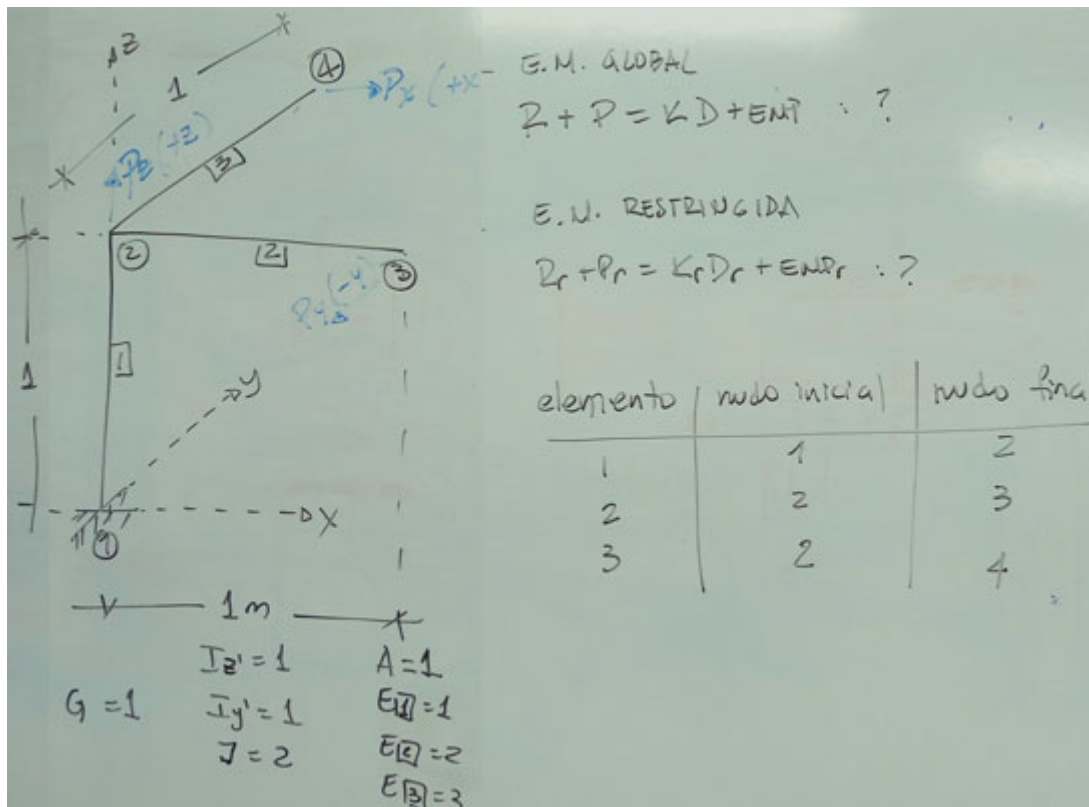 Z
1
4
Px (+x
Pz (+z)
3
2
2
3
(-y
1
1
y
X
1
1m
Iz' = 1 A = 1
G = 1 Iy' = 1 E1 = 1
J = 2 E2 = 2
E3 = 3
E.M. GLOBAL
R + P = KD + EMP : ?
E.M. RESTRINGIDA
Rr + Pr = KrDr + EMPr : ?
elemento nudo inicial nudo fina
1 1 2
2 2 3
3 2 4